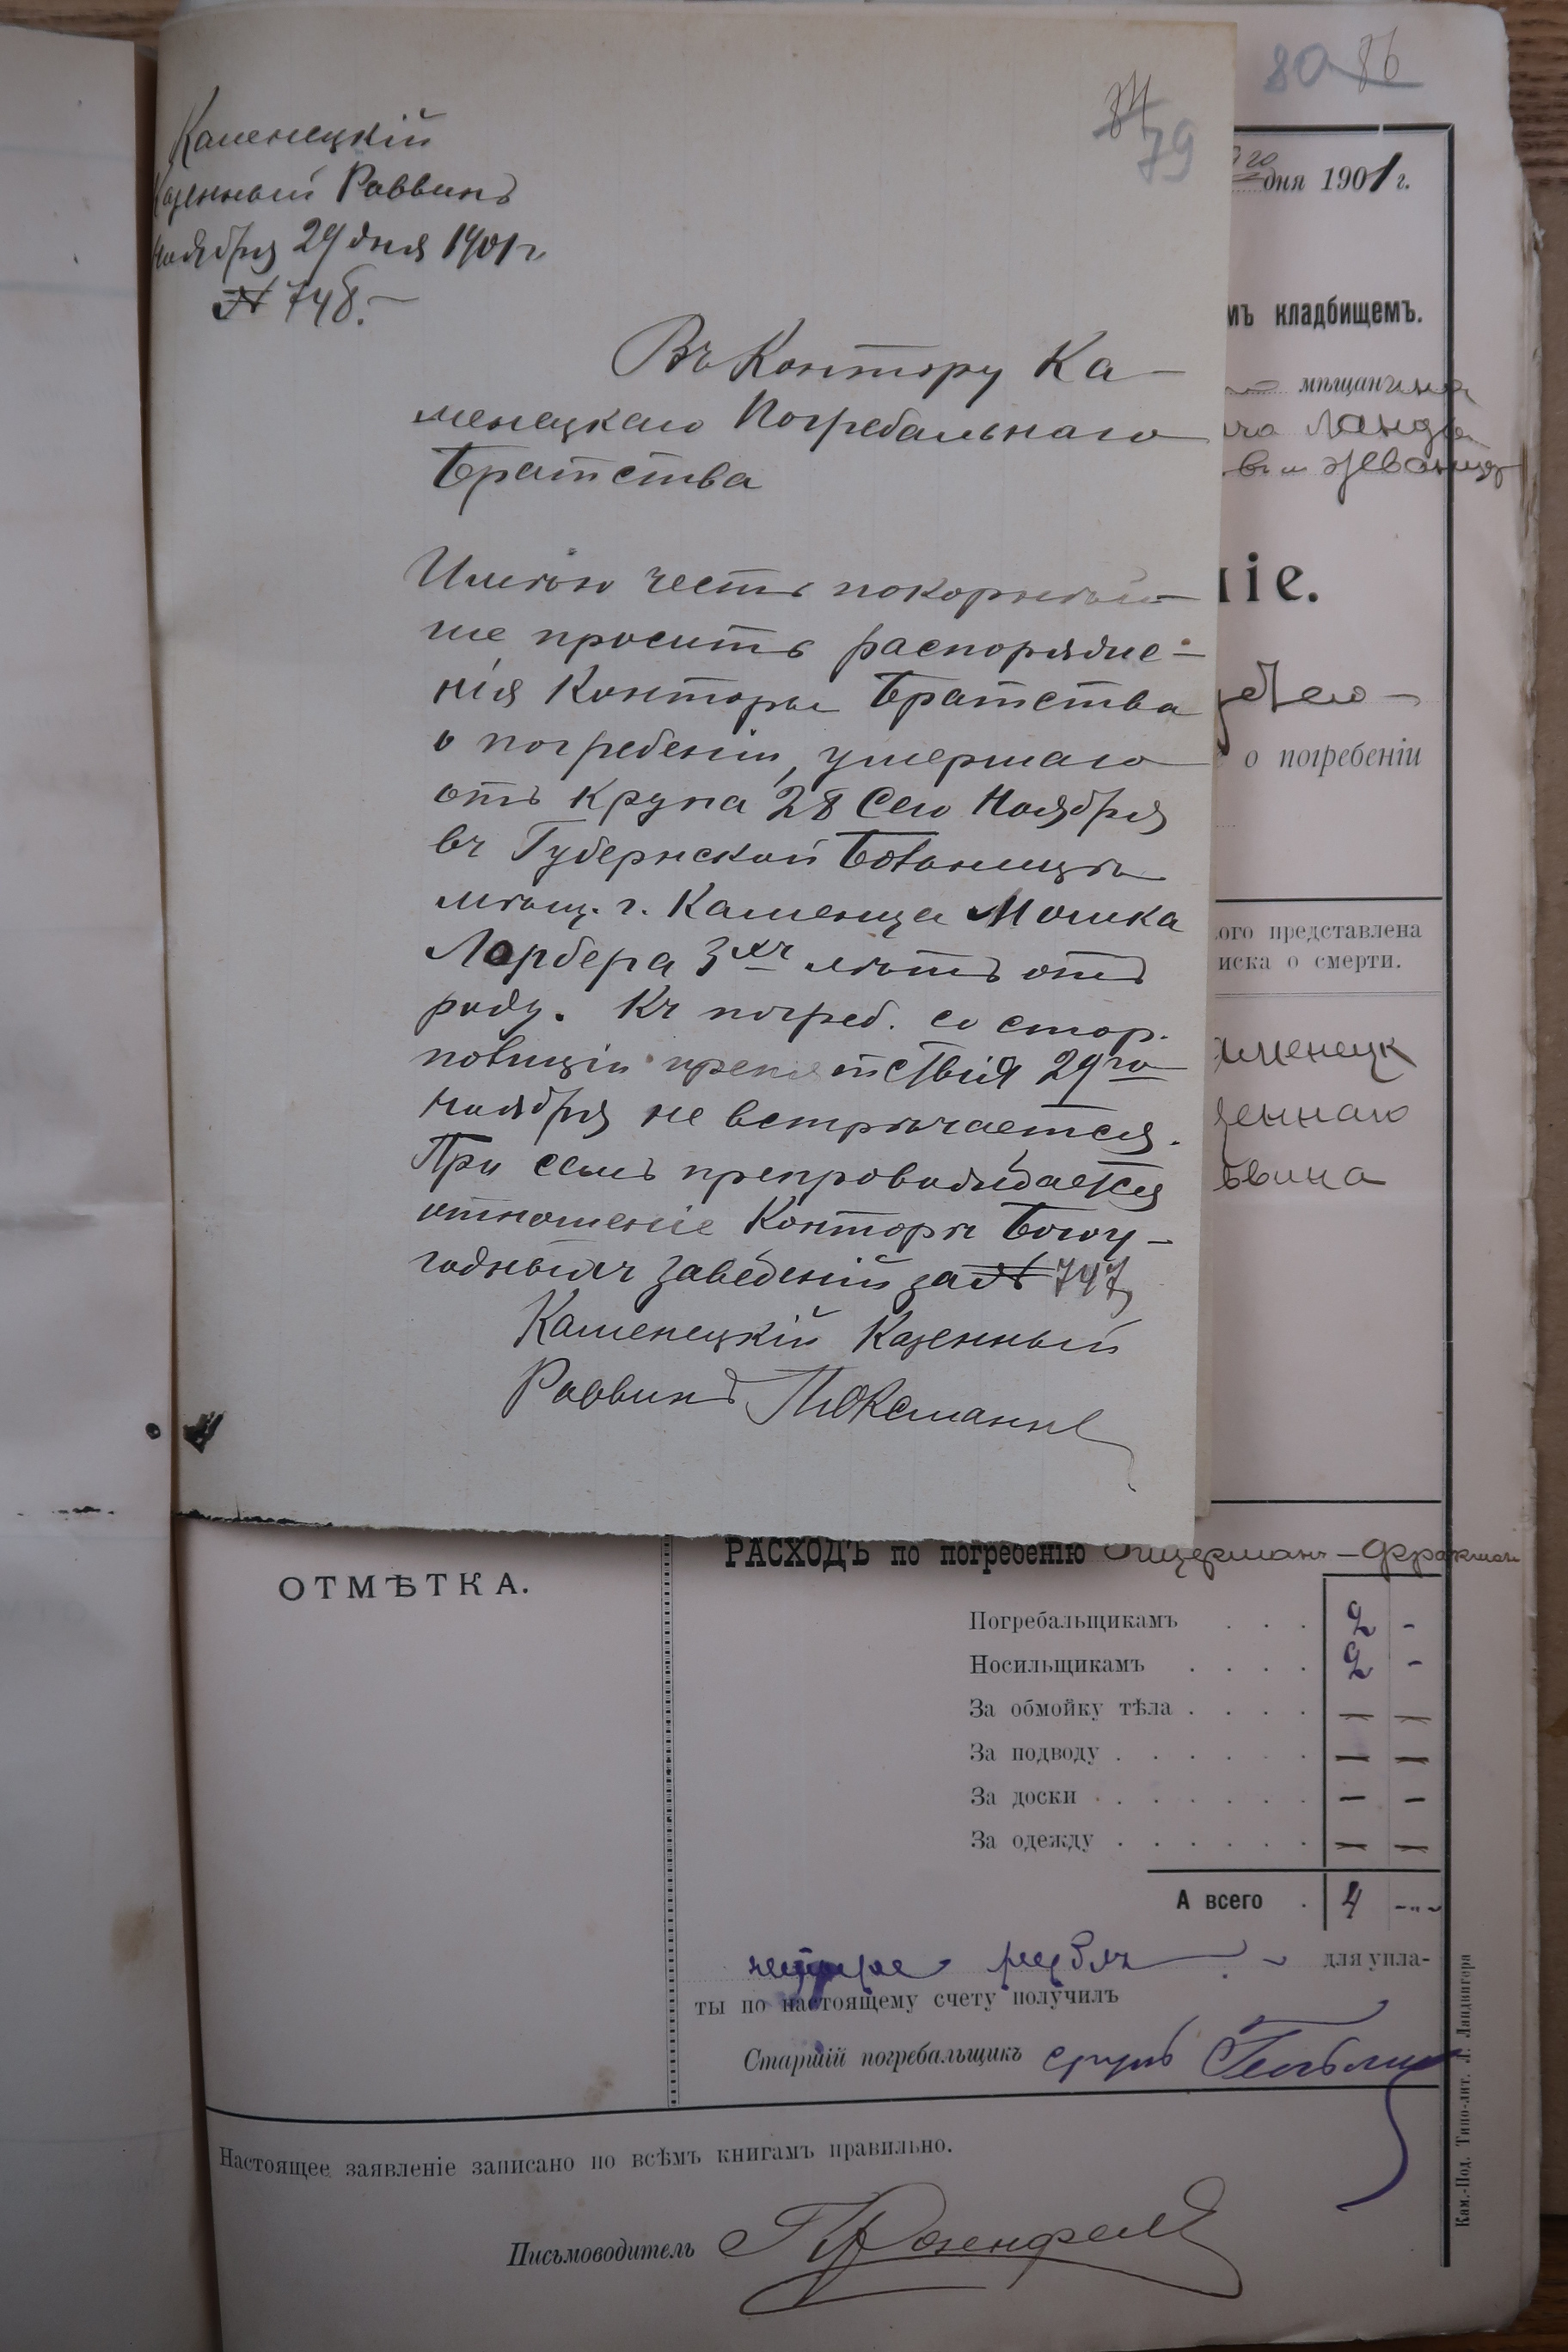 84
79
Каменецкій
Казенный Раввинъ
Ноября 29 дня 1901 г.
№ 748.—
Въ Контору Ка-
менецкаго Погребальнаго
Братства
Имѣю честь покорнѣй-
ше просить распоряже-
нія Конторы Братства
о погребеніи, умершаго
отъ крупа 28 Сего Ноября
въ Губернской Больницѣ
мѣщ. г. Каменца Мошка
Лорбера 3хъ лѣтъ отъ
роду. Къ погреб. со стор.
полиціи препятствія 29го
Ноября не встрѣчается.
При семъ препровождается
отношеніе Конторы Богоу-
годныхъ заведеній за № 747
Каменецкій Казенный
Раввинъ
80 86
дня 1901 г.
мъ кладбищемъ.
мѣщанина
Ланда
Жванца
ніе.
о погребеніи
ого представлена
иска о смерти.
аменецк
зеннаго
ввина
ОТМѢТКА.
РАСХОДЪ по погребенію
Погребальщикамъ . . . 2 -
Носильщикамъ . . . . 2 -
За обмойку тѣла . . . . — —
За подводу . . . . . . — —
За доски . . . . . . — —
За одежду . . . . . . — —
А всего . 4 -"-
четыре рубля для упла-
ты по настоящему счету получилъ
Старшій погребальщикъ сруль
Настоящее заявленіе записано по всѣмъ книгамъ правильно.
Письмоводитель Розенфельд
Кам.-Под. Типо-лит. Л. Ландвигера